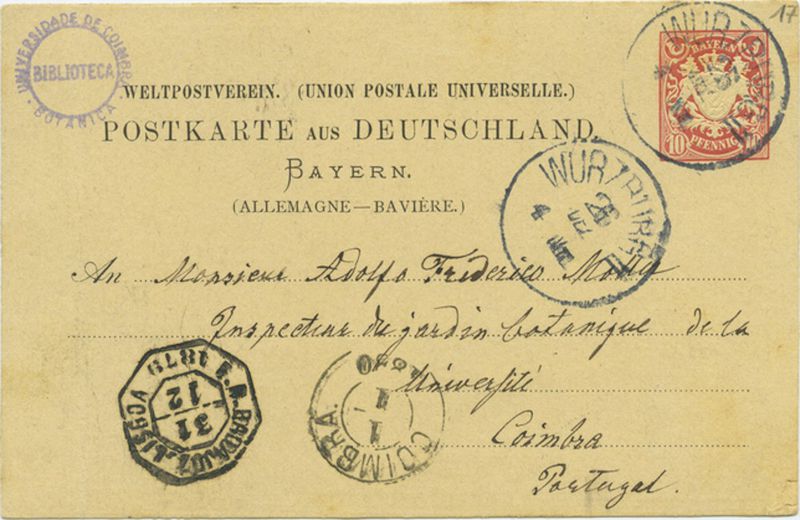 17
UNIVERSIDADE DE COIMBRA
BIBLIOTECA
BOTANICA
BAYERN
10 PFENNIG 10
WELTPOSTVEREIN. (UNION POSTALE UNIVERSELLE.)
POSTKARTE AUS DEUTSCHLAND.
BAYERN.
(ALLEMAGNE—BAVIÈRE.)
WÜRZBURG
WÜRZBURG
An Monsieur Adolfo Fréderico Moller
Inspecteur du jardin botanique de la
Université
Coimbra
Portugal.
BADAJOZ. LISBOA
1879
31
12
COIMBRA.
1
1